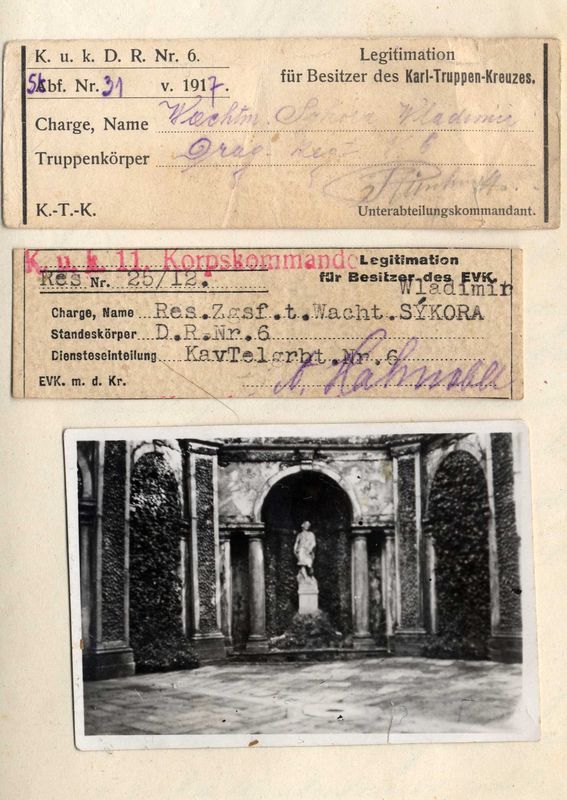 K. u. k. D. R. Nr. 6.
Skbf. Nr. 31 v. 1917.
Legitimation
für Besitzer des Karl-Truppen-Kreuzes.
Charge, Name Wachtm. Sykora Vladimir
Truppenkörper Drag. Regt. N 6
K.-T.-K.
Unterabteilungskommandant.
K. u. k. 11. Korpskommando
Res Nr. 25/12.
Legitimation
für Besitzer des EVK.
Wladimir
Charge, Name Res.Zgsf.t.Wacht.SÝKORA
Standeskörper D.R.Nr.6
Diensteseinteilung KavTelgrbt.Nr.6
EVK. m. d. Kr.